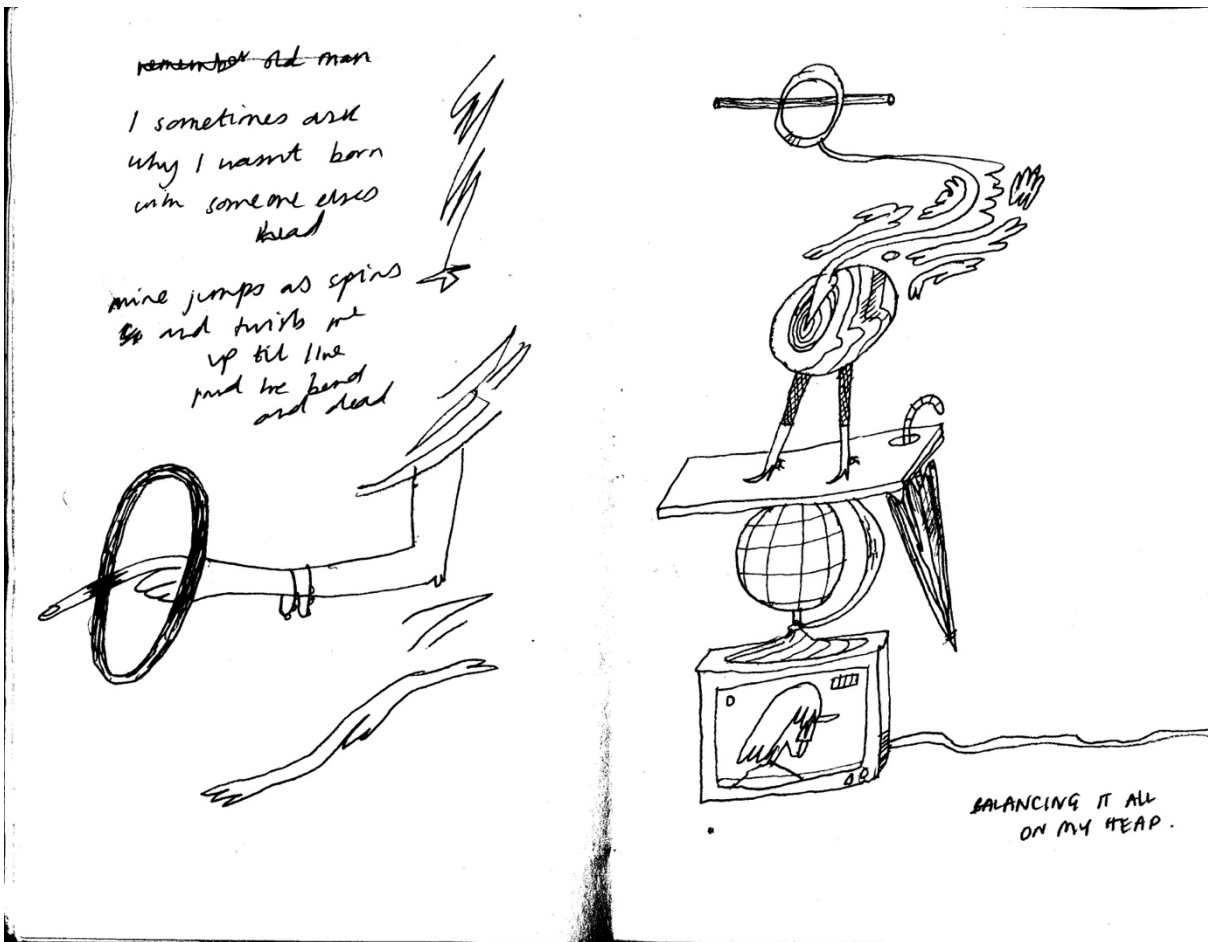 remember old man
I sometimes ask
why I wasnt born
with someone elses
head
mine jumps as spins
and twists me
up til
and
and dead
BALANCING IT ALL
ON MY HEAP.